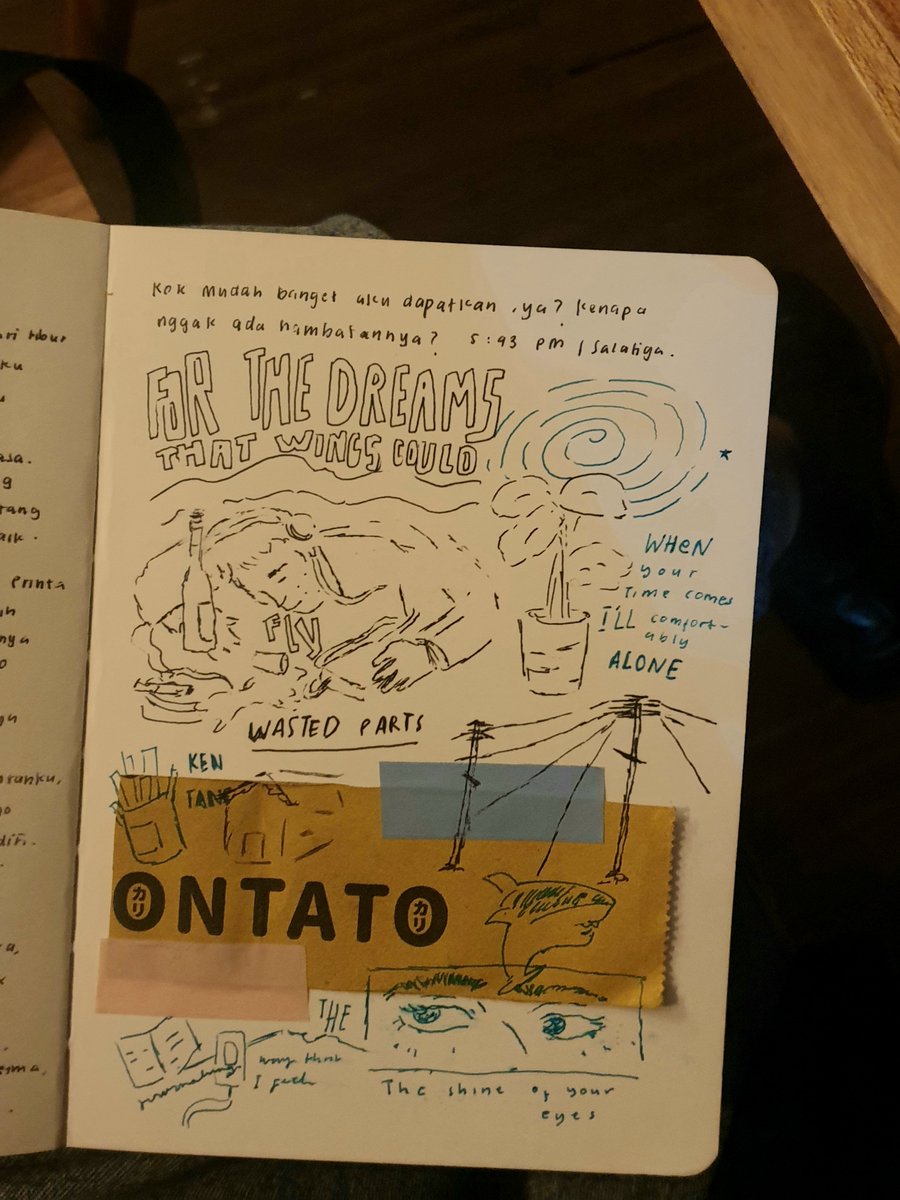 ari libur
ku
asa.
g
tang
aik.
Printa
uh
nya
o
ya
oranku,
go
diri.
a,
k
ema,
Kok mudah banget aku dapatkan, ya? kenapa
nggak ada hambatannya? 5:43 PM / Salatiga.
FOR THE DREAMS
THAT WINGS COULD
FLY
WHEN
your
time comes
I'LL comfort-
ably
ALONE
WASTED PARTS
KEN
TANG
ONTATO
カリ
カリ
THE
way that
I feel
The shine of your
eyes